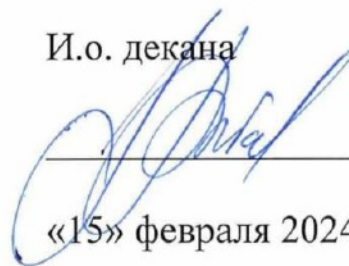 И.о. декана
«15» февраля 2024